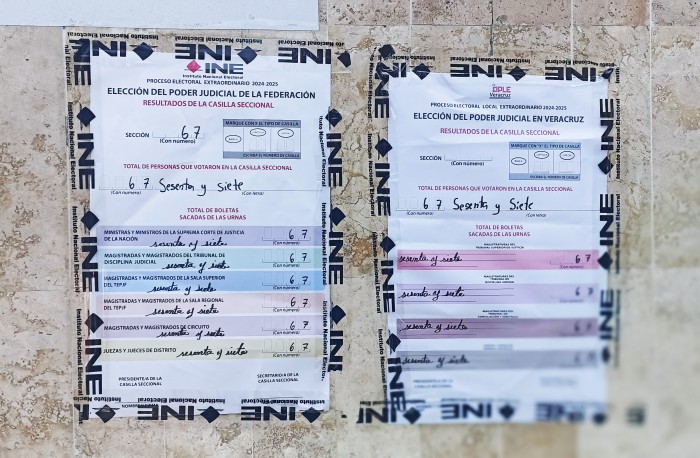 INE
Instituto Nacional Electoral
PROCESO ELECTORAL EXTRAORDINARIO 2024-2025
ELECCIÓN DEL PODER JUDICIAL DE LA FEDERACIÓN
RESULTADOS DE LA CASILLA SECCIONAL
MARQUE CON "X" EL TIPO DE CASILLA
SECCIÓN 67
(Con número)
ESCRIBA EL NÚMERO DE CASILLA
TOTAL DE PERSONAS QUE VOTARON EN LA CASILLA SECCIONAL
67 Sesenta y siete
(Con número) (Con letra)
TOTAL DE BOLETAS
SACADAS DE LAS URNAS
MINISTRAS Y MINISTROS DE LA SUPREMA CORTE DE JUSTICIA
DE LA NACIÓN sesenta y siete 67
(Con número)
MAGISTRADAS Y MAGISTRADOS DEL TRIBUNAL DE
DISCIPLINA JUDICIAL sesenta y siete 67
MAGISTRADAS Y MAGISTRADOS DE LA SALA SUPERIOR
DEL TEPJF sesenta y siete 67
MAGISTRADAS Y MAGISTRADOS DE LA SALA REGIONAL
DEL TEPJF sesenta y siete 67
MAGISTRADAS Y MAGISTRADOS DE CIRCUITO
sesenta y siete 67
JUEZAS Y JUECES DE DISTRITO sesenta y siete 67
PRESIDENTE/A DE LA
CASILLA SECCIONAL
SECRETARIO/A DE LA
CASILLA SECCIONAL
OPLE
Veracruz
PROCESO ELECTORAL LOCAL EXTRAORDINARIO 2024-2025
ELECCIÓN DEL PODER JUDICIAL EN VERACRUZ
RESULTADOS DE LA CASILLA SECCIONAL
MARQUE CON "X" EL TIPO DE CASILLA
SECCIÓN
(Con número)
ESCRIBA EL NÚMERO DE CASILLA
TOTAL DE PERSONAS QUE VOTARON EN LA CASILLA SECCIONAL
67 Sesenta y Siete
(Con número) (Con letra)
TOTAL DE BOLETAS
SACADAS DE LAS URNAS
MAGISTRATURAS DEL
TRIBUNAL SUPERIOR DE JUSTICIA
sesenta y siete 67
(Con número)
sesenta y siete 67
sesenta y siete 67
sesenta y siete
PRESIDENTE/A DE LA
CASILLA SECCIONAL
INE Instituto Nacional Electoral